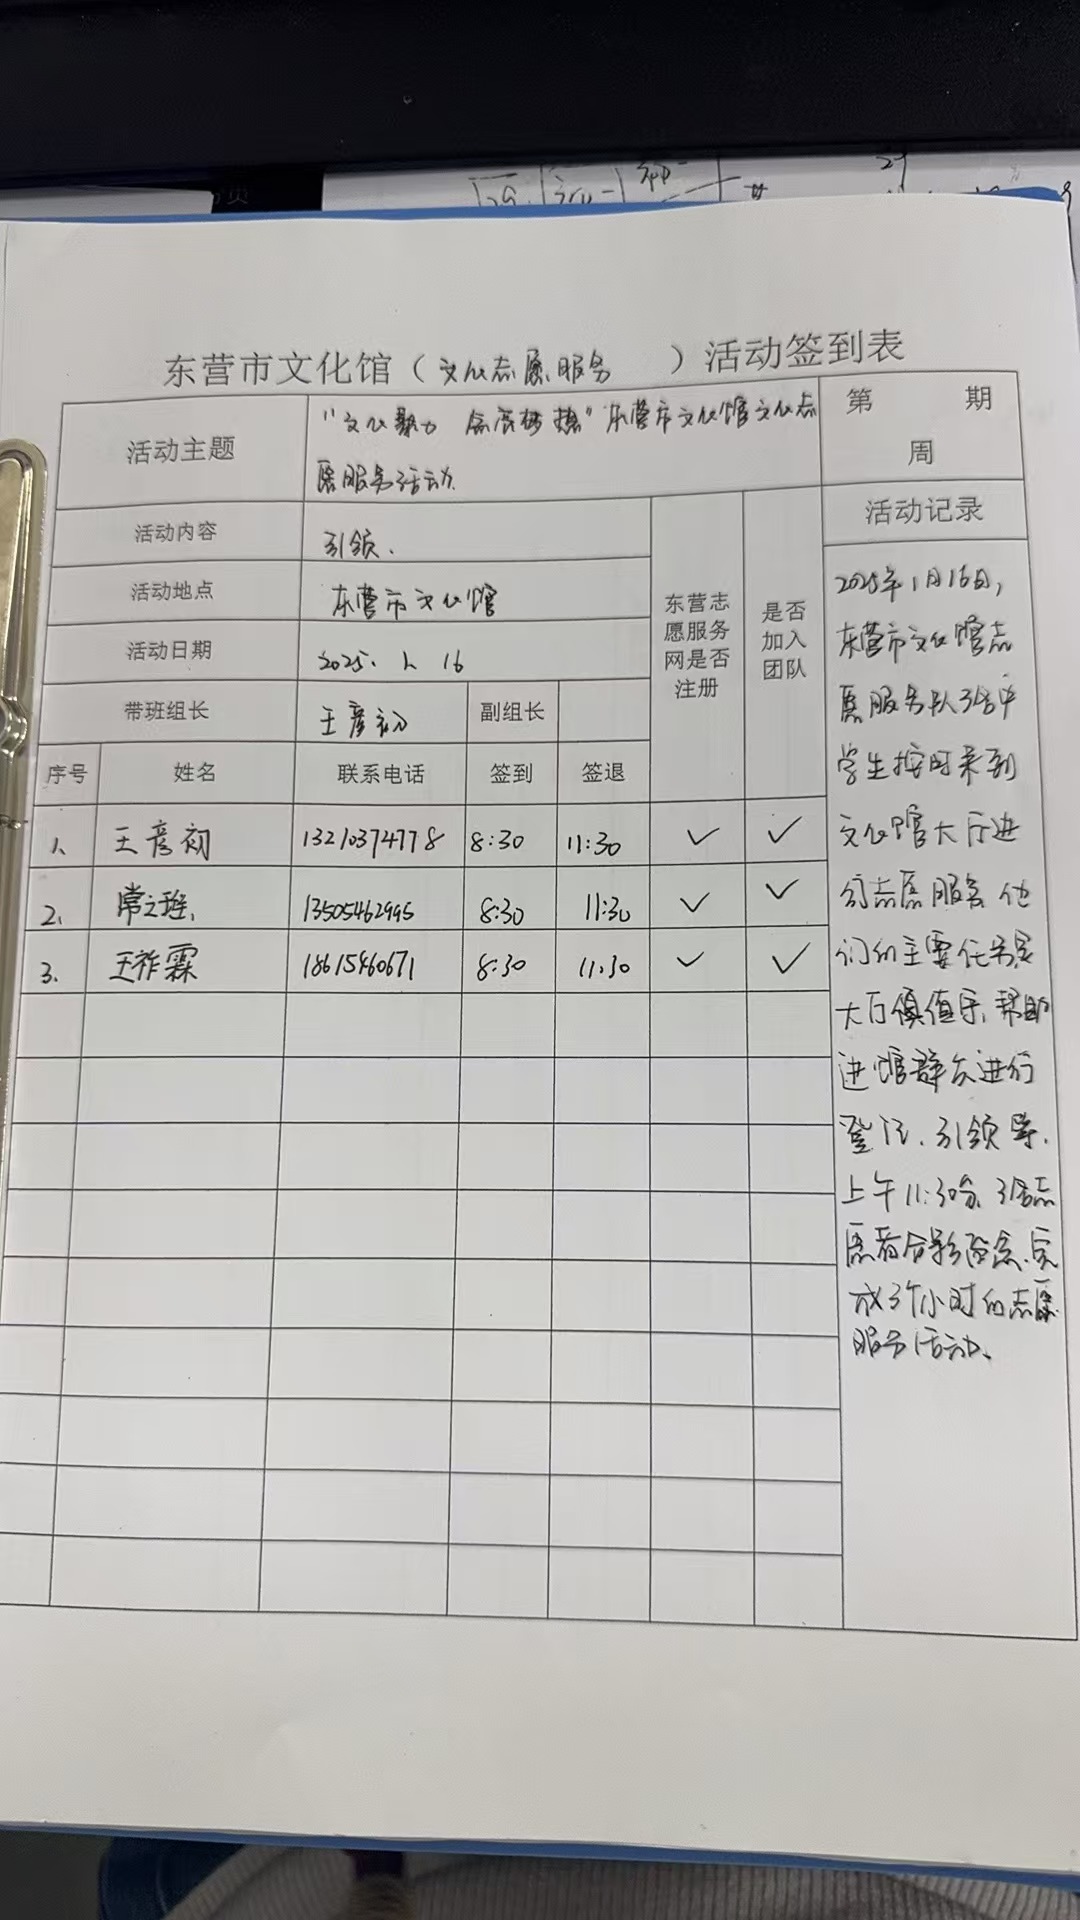 东营市文化馆（文化志愿服务）活动签到表
活动主题 "文化聚力 东营市文化馆文化志
愿服务活动
第 期
周
活动内容 引领.
活动地点 东营市文化馆
活动日期 2025. 1. 16
带班组长 王彦初 副组长
东营志
愿服务
网是否
注册
是否
加入
团队
活动记录
序号 姓名 联系电话 签到 签退
1. 王彦初 13210374778 8:30 11:30 ✓ ✓
2. 常之 13505462995 8:30 11:30 ✓ ✓
3. 王祚霖 18615460671 8:30 11:30 ✓ ✓
2025年1月16日,
东营市文化馆志
愿服务队3名中
学生按时来到
文化馆大厅进
行志愿服务 他
们的主要任务是
大厅值守、帮助
进馆群众进行
登记、引领等.
上午11:30分、3名志
愿者合影留念、完
成3个小时的志愿
服务活动、